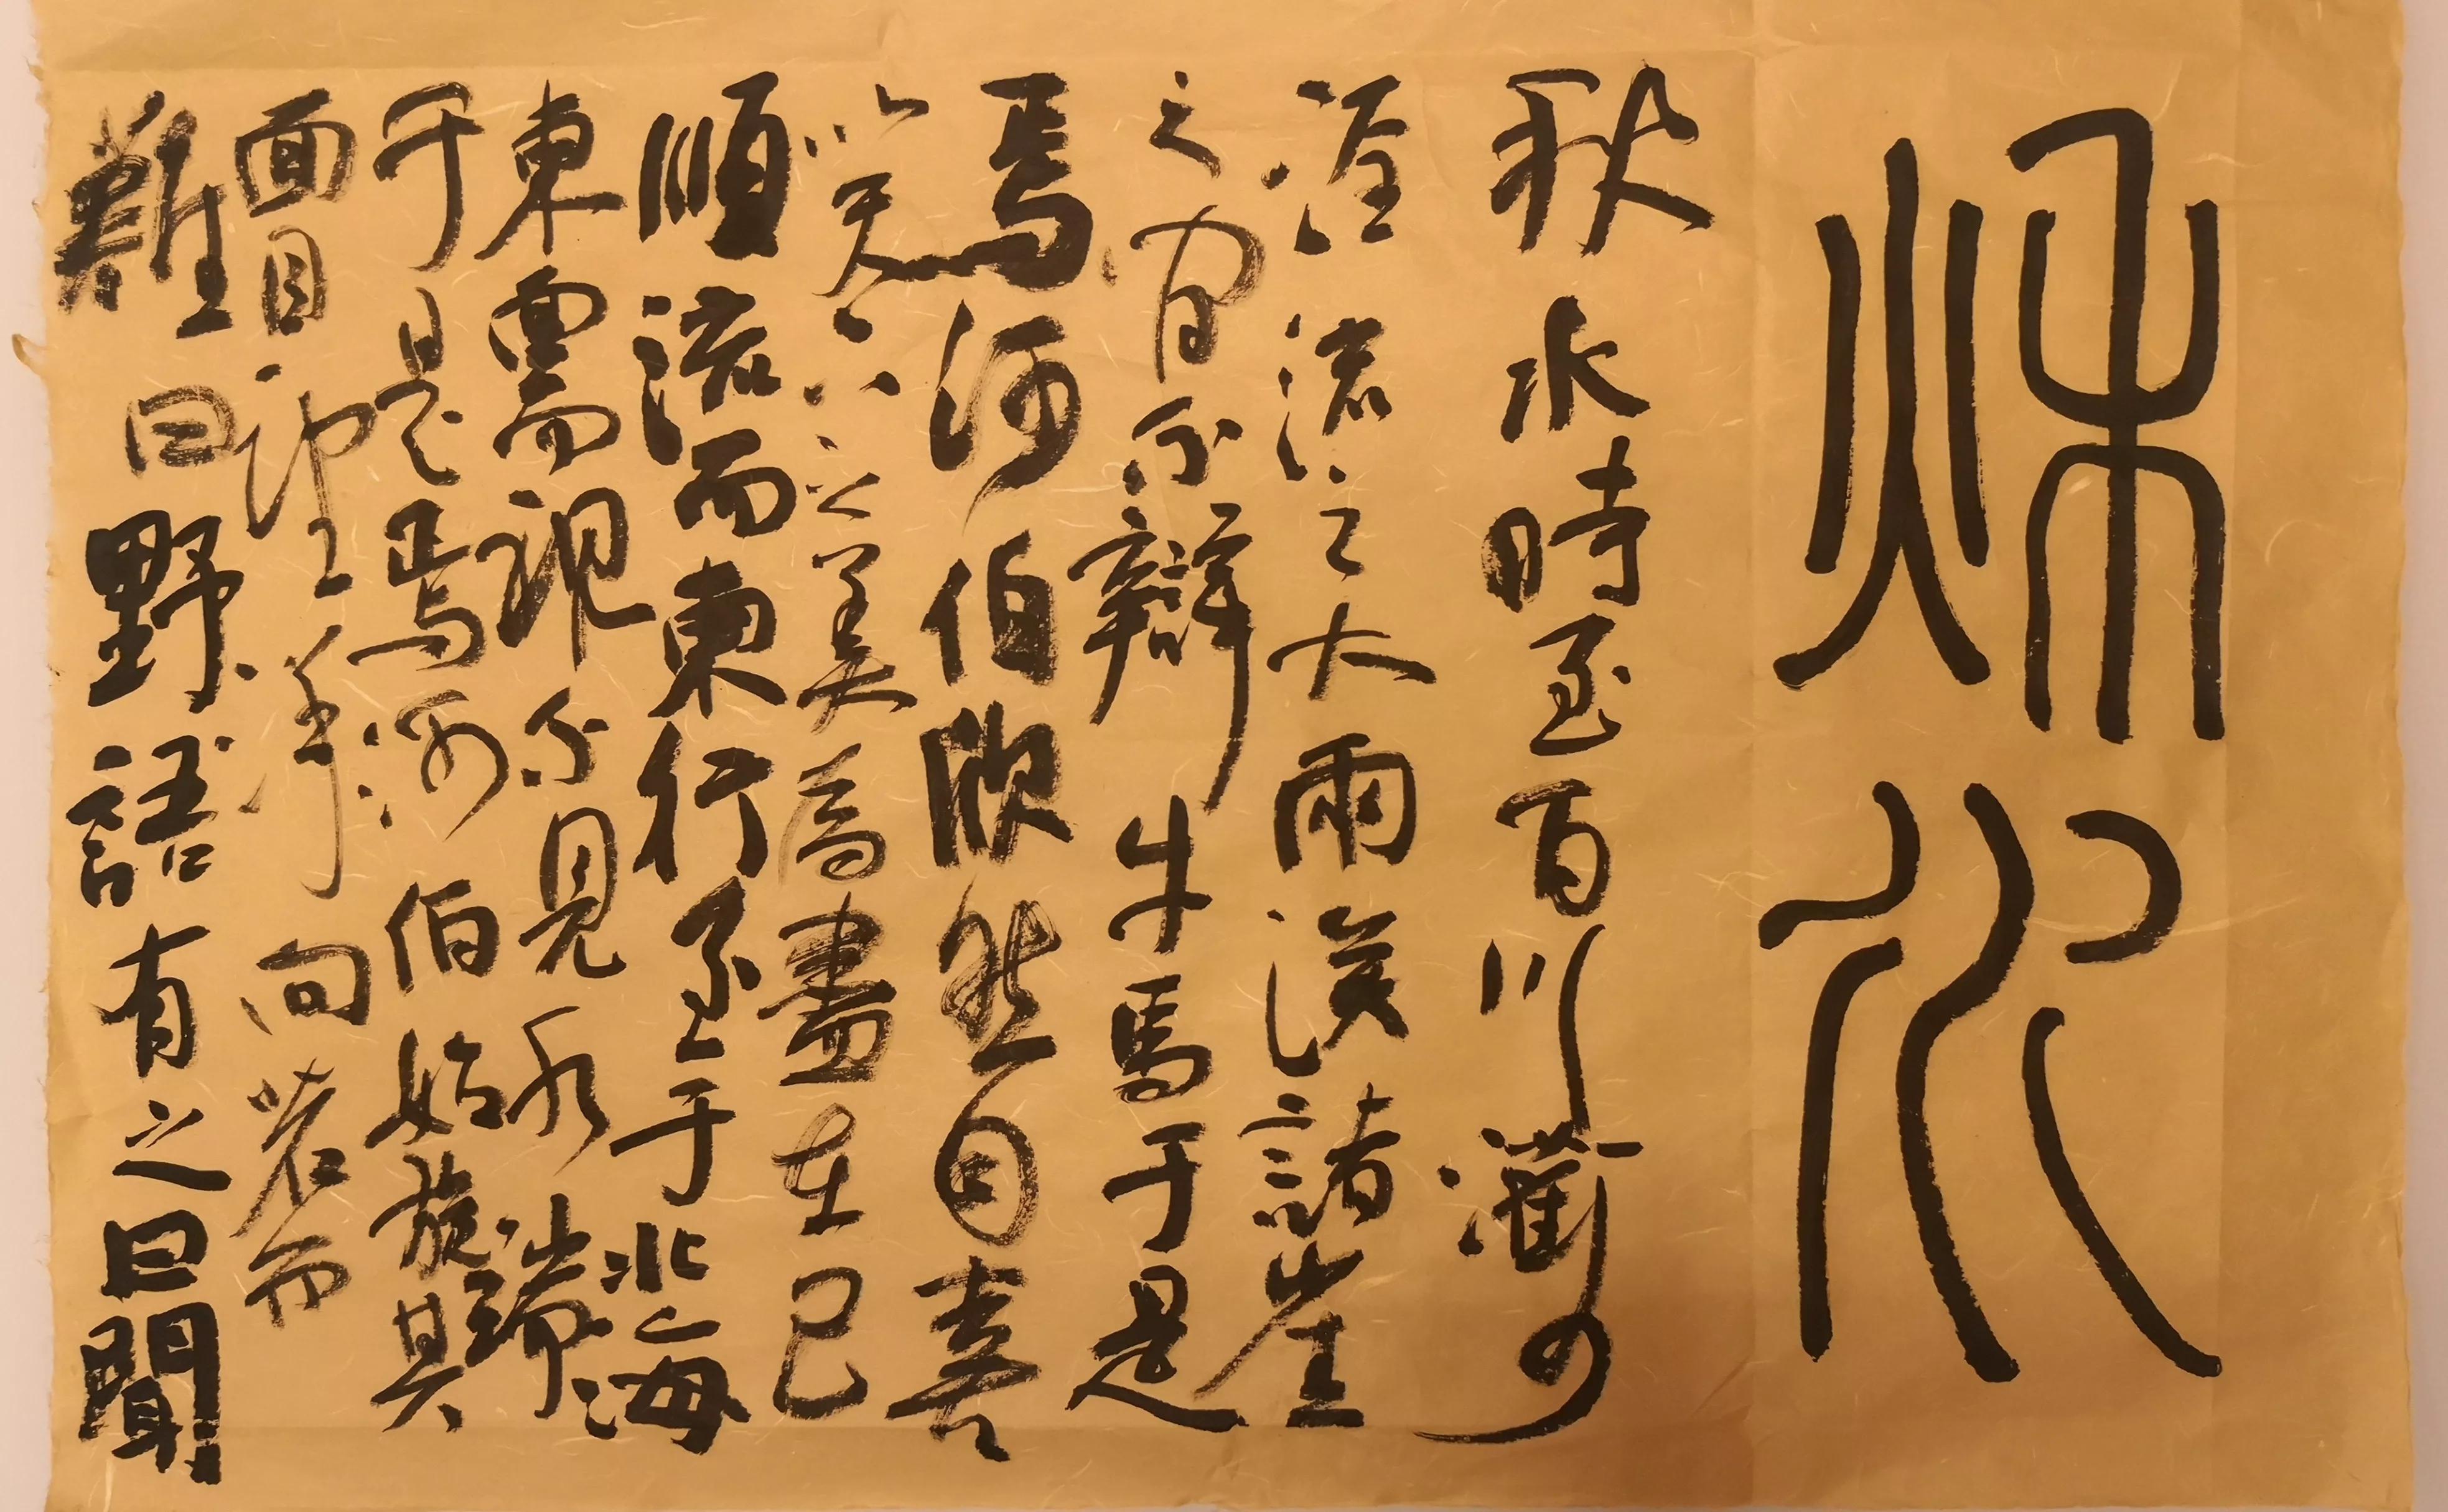 秋水
秋水時至百川灌河
涇流之大兩涘諸崖
之間不辯牛馬于是
焉河伯欣然自喜
以天下之美為盡在己
順流而東行至于北海
東面而視不見水端
于是焉河伯始旋其
面目望洋向若而
難曰野語有之曰聞